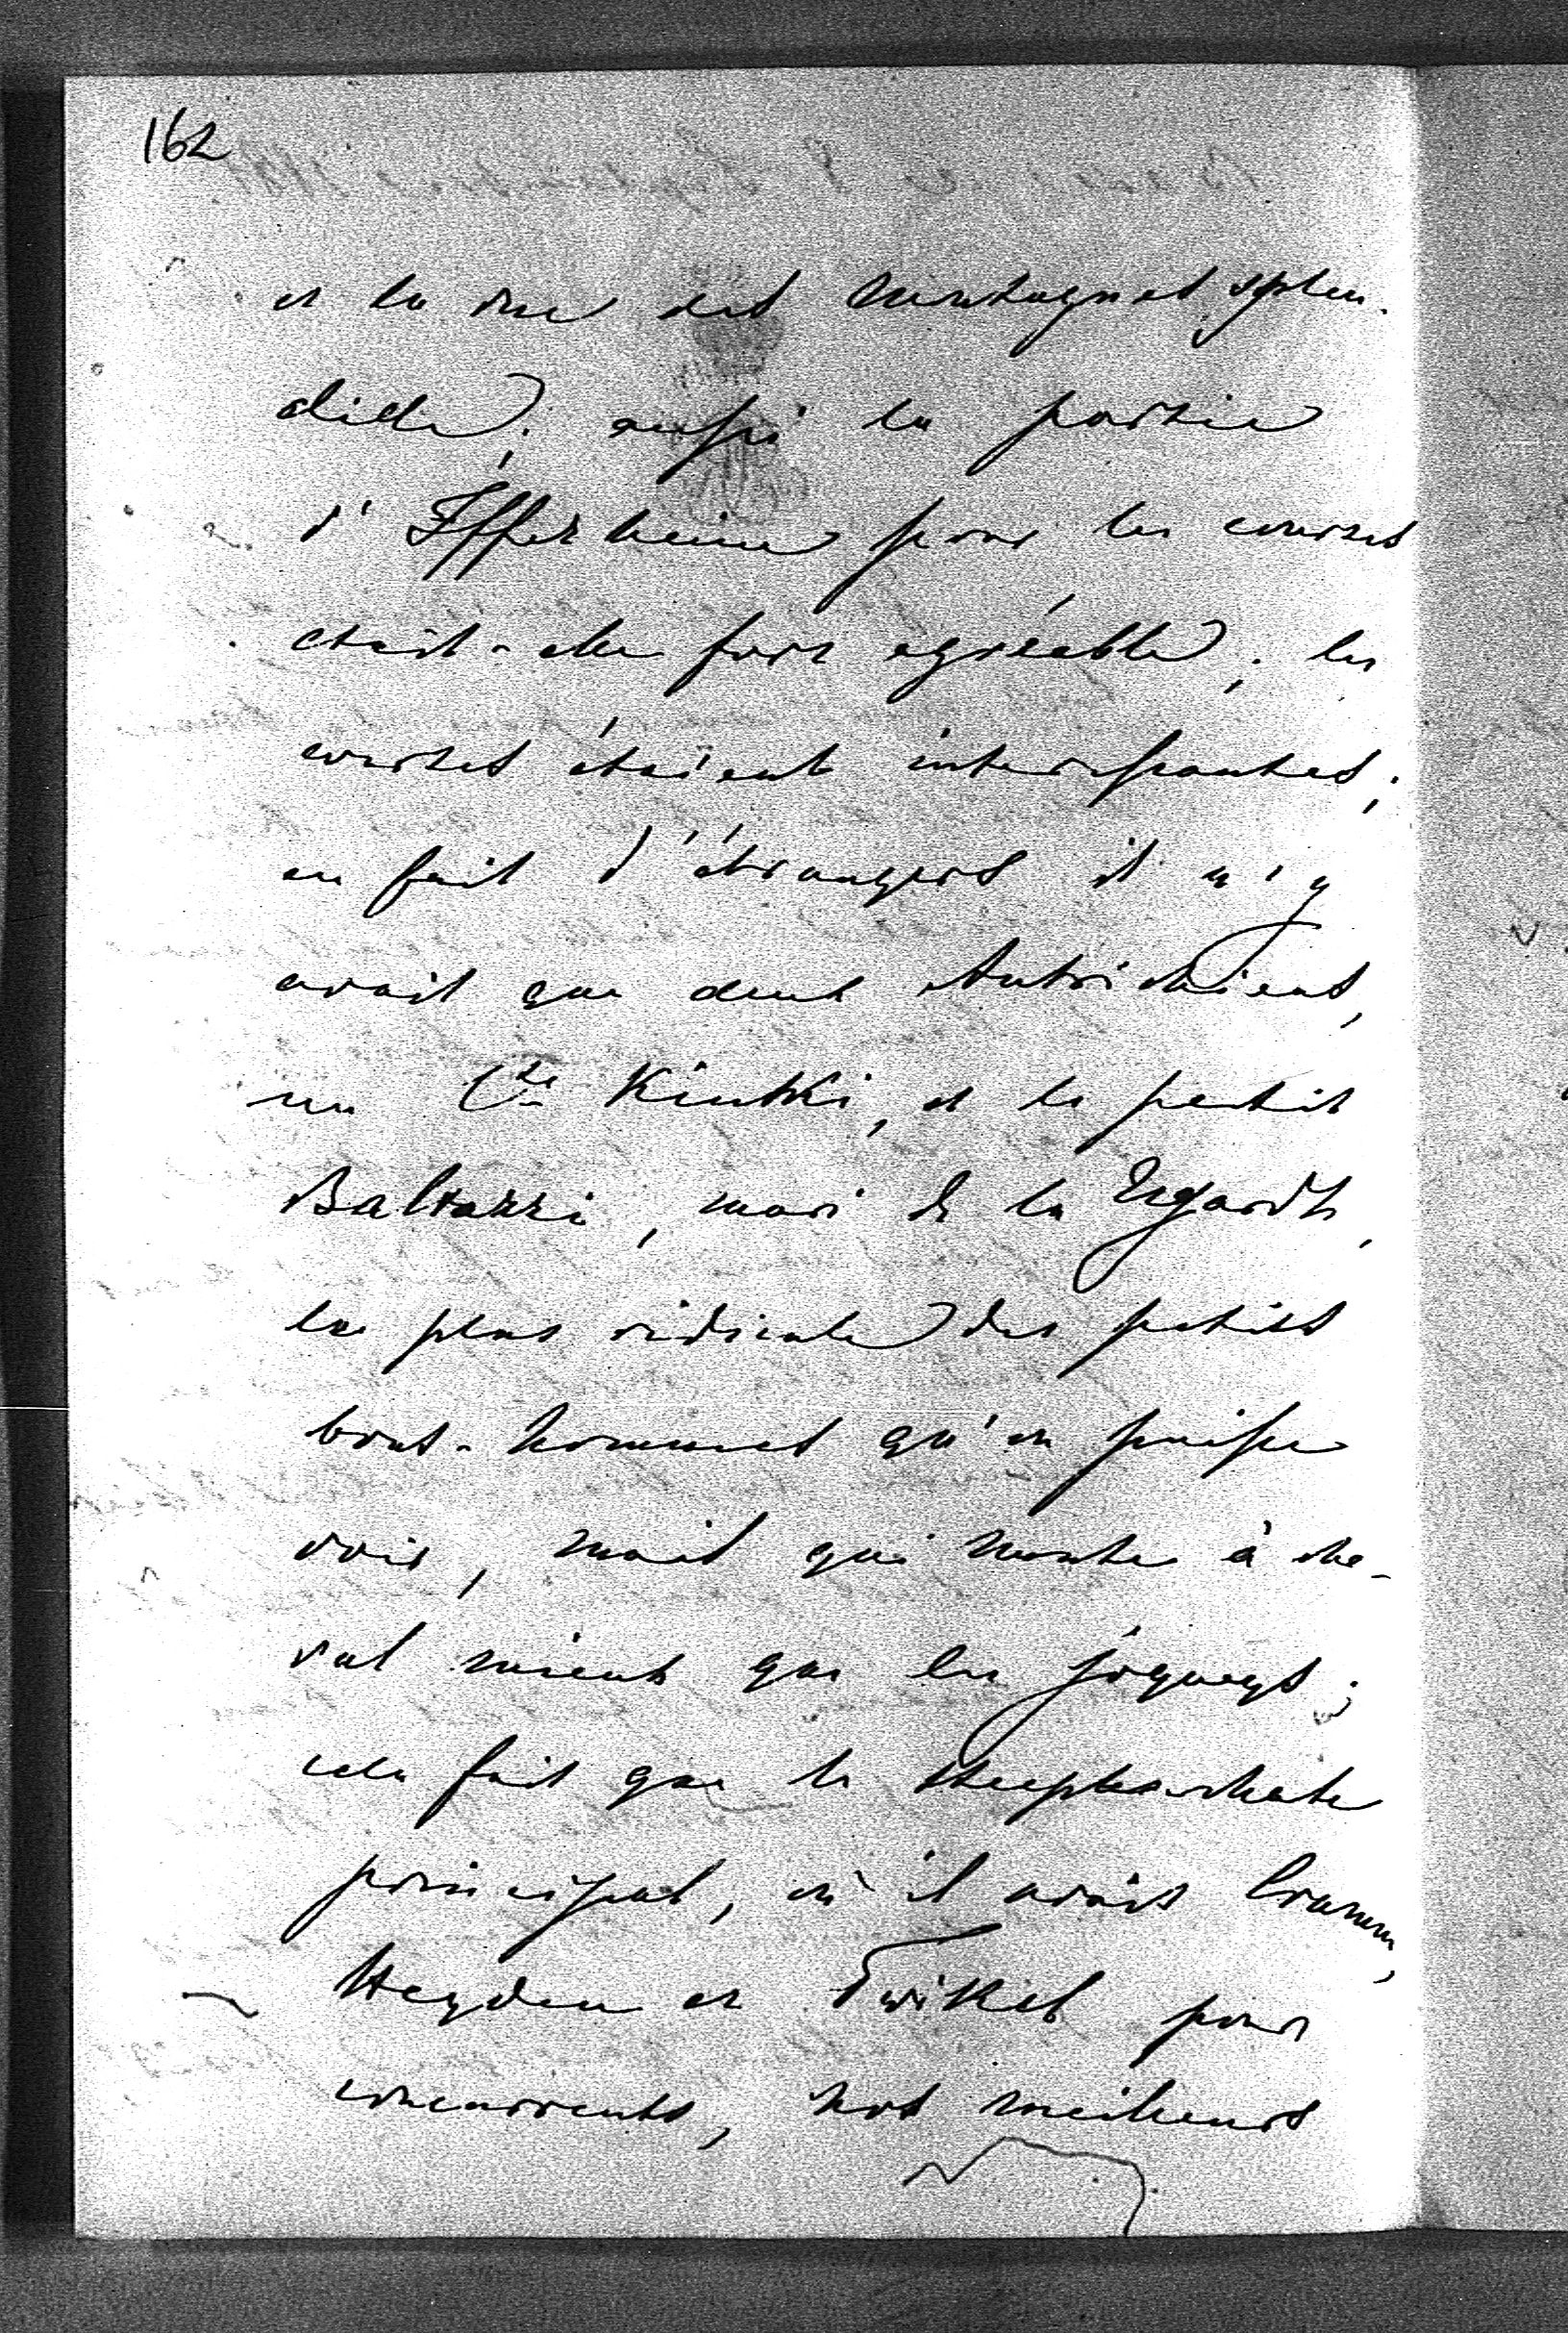 162
et la vue des montagnes splen-
dide; aussi la partie
d'Iffezheim pour les courses
était-elle fort agréable; les
courses étaient interessantes;
en fait d'étrangers il n'y
avait que deux Autrichiens,
un Cte Kinski, et le petit
Baltazzi, mari de la Ugarth,
le plus ridicule des petits
bons-hommes qu'on puisse
voir, mais qui monte à che-
val mieux que les joqueys;
cela fait que le steeple-chase
principal, où il avait Cramm,
Heyden et Twikel pour
concurrents, nos meilleurs